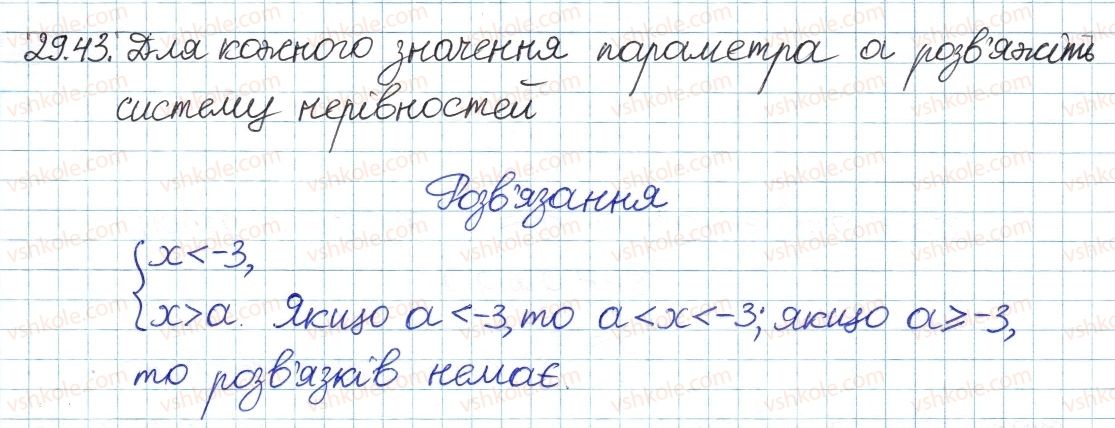 29.43. Для кожного значення параметра a розв'яжіть
систему нерівностей
Розв'язання
{ x < -3,
{ x > a. Якщо a < -3, то a < x < -3; якщо a ≥ -3,
то розв'язків немає.